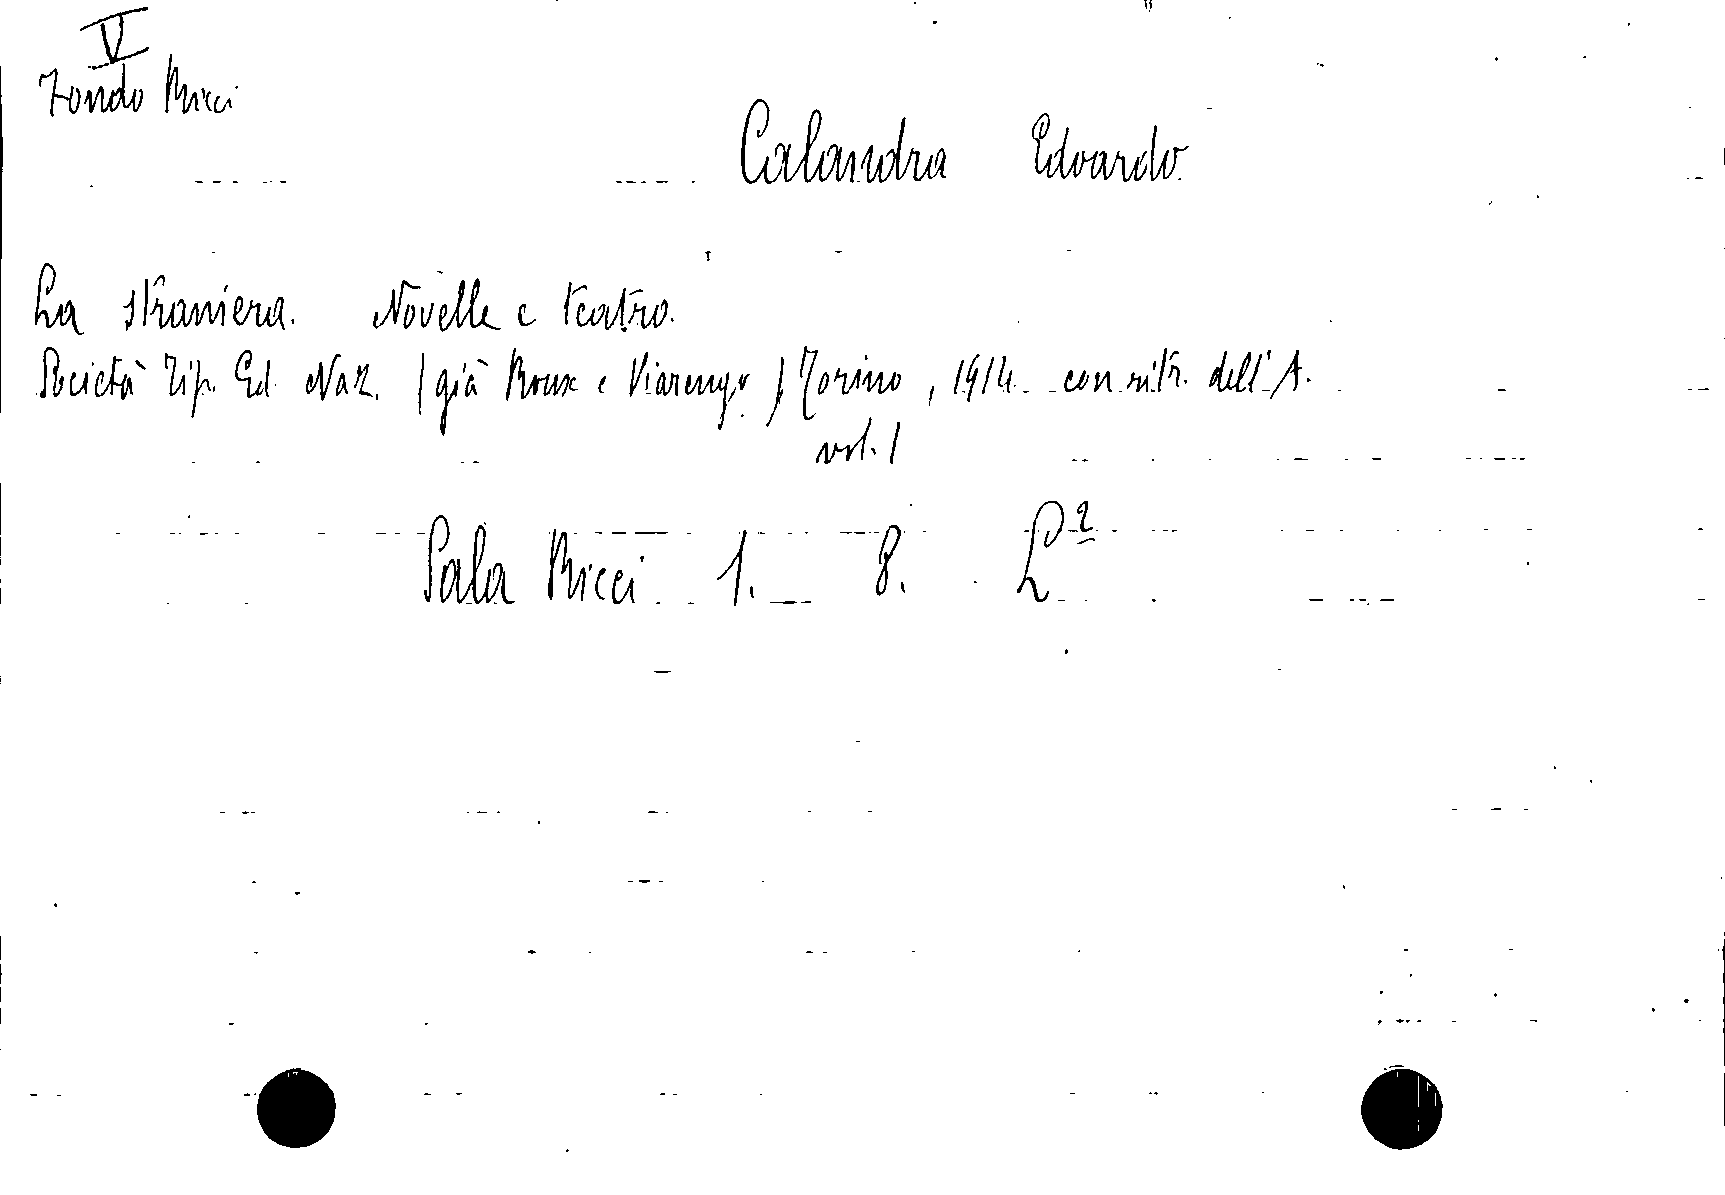 V
Fondo Ricci
Calandra Edoardo
La straniera. Novelle e teatro.
Società Tip. Ed. Naz. (già Roux e Viarengo) Torino, 1914 con ritr. dell'A.
vol. 1
Sala Ricci 1. 8. L²